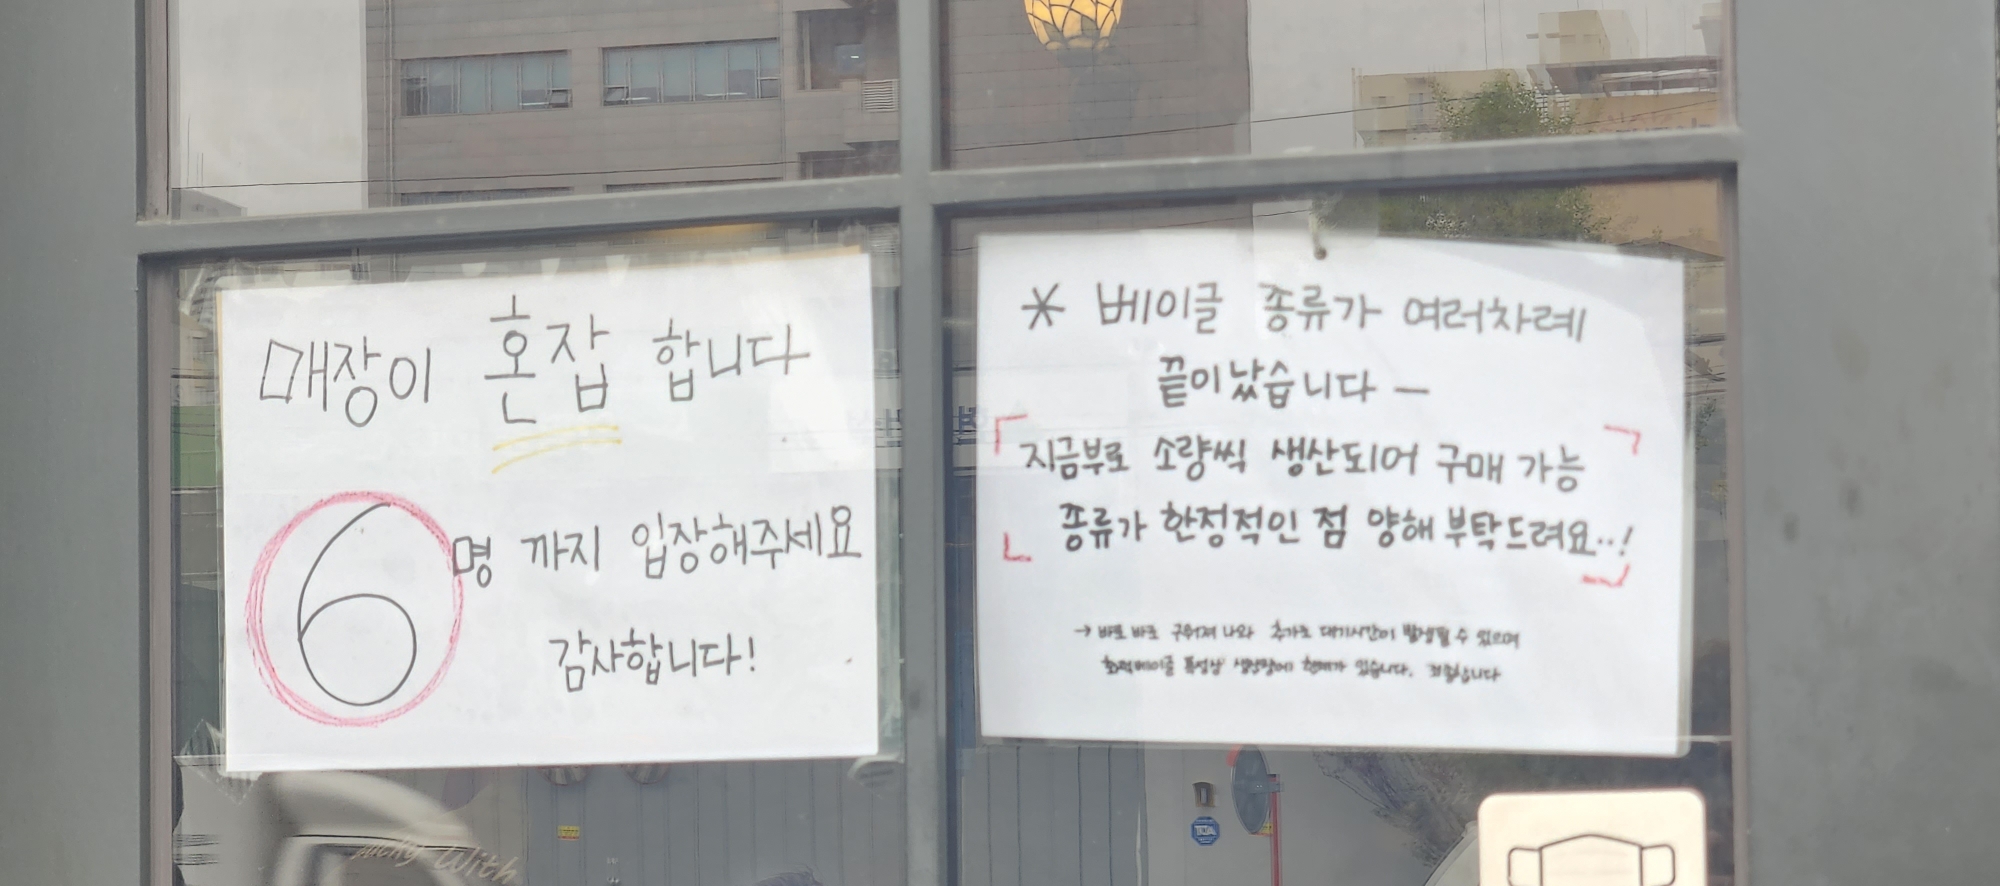 매장이 혼잡 합니다
6명 까지 입장해주세요
감사합니다!
* 베이글 종류가 여러차례
끝이났습니다 —
지금부로 소량씩 생산되어 구매 가능
종류가 한정적인 점 양해 부탁드려요..!
→ 바로 바로 구워져 나와 추가로 대기시간이 발생될 수 있으며
화덕베이글 특성상 생산량에 한계가 있습니다.
Lucky With